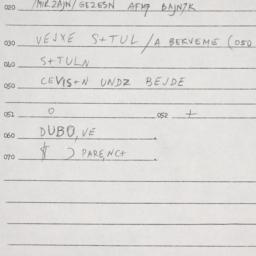 020 /MIRZAJN/GEZESN AFMP BAJNJK
030 VEJXE S+TUL /A BERVEME (050
040 S+TULN
050 CEVIS+N UNDZ BEJDE
051 O 052 +
060 DUBO,VE
070 ) PARENCT